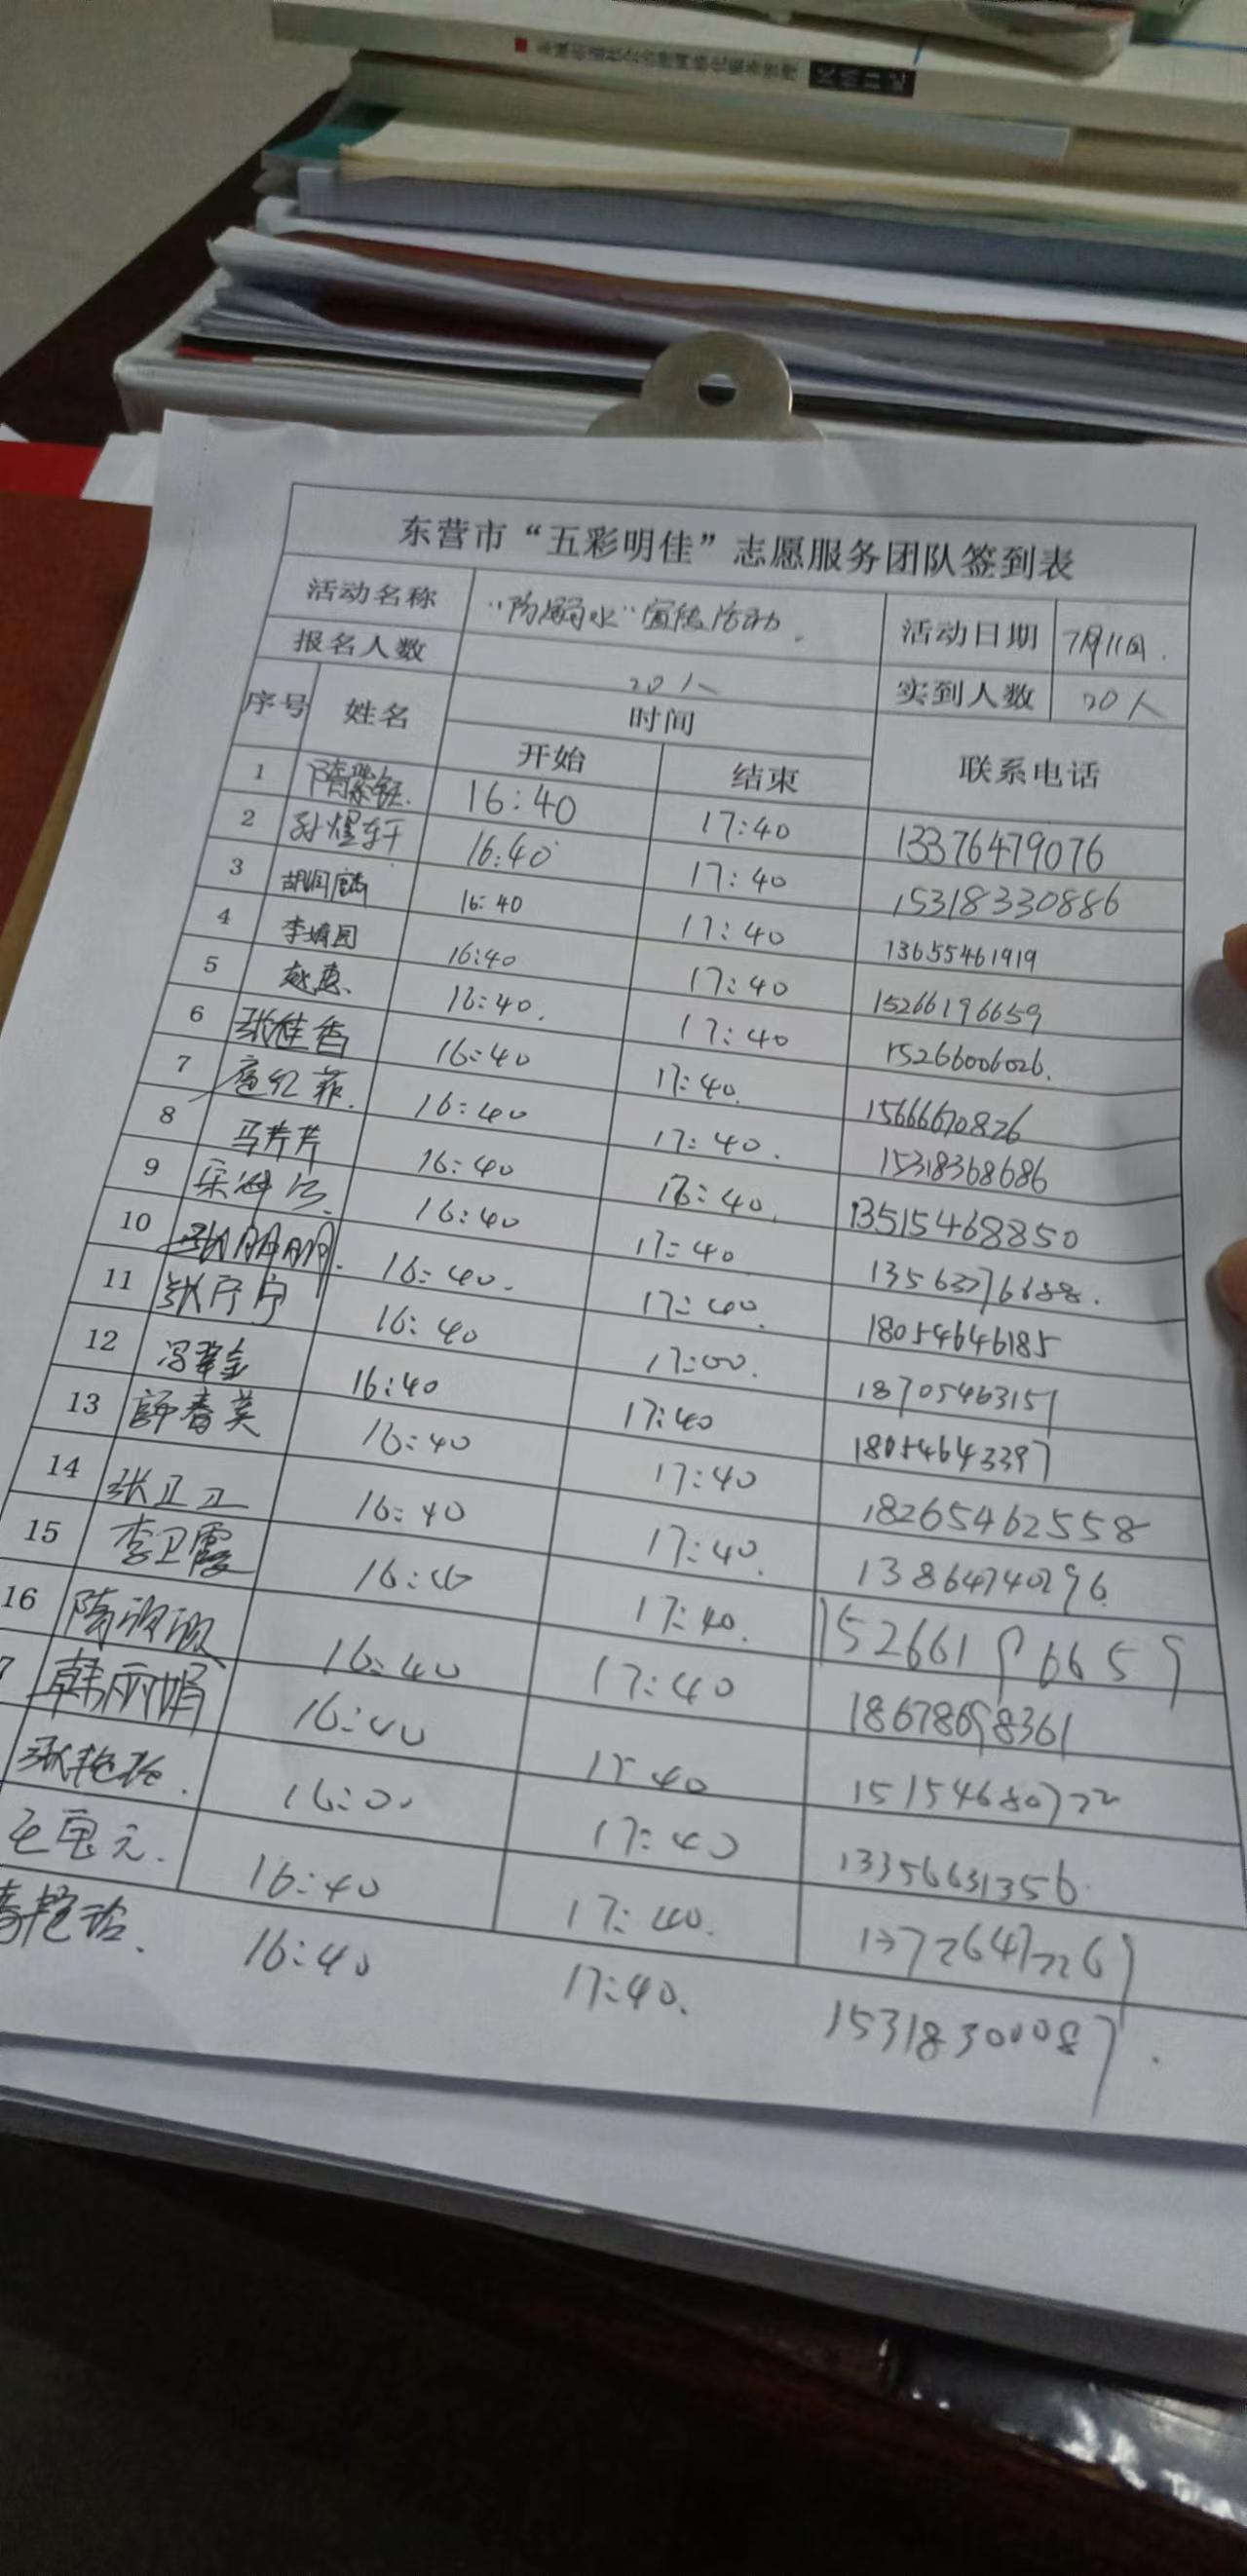 东营市“五彩明佳”志愿服务团队签到表
活动名称 “防溺水”宣传活动. 活动日期 7月11日.
报名人数 20人 实到人数 20人
序号 姓名 时间 联系电话
开始 结束
1 隋紫钰. 16:40 17:40 13376479076
2 孙煜轩. 16:40 17:40 15318330886
3 胡润麟 16:40 17:40 13655461919
4 李媜园 16:40 17:40 15266196659
5 赵惠. 16:40. 17:40 15266006026.
6 张桂香 16:40 17:40. 15666670826
7 唐红菲. 16:40 17:40. 15318368686
8 马芹芹 16:40 17:40. 13515468850
9 宋 16:40 17:40 13563776688.
10 张朋朋. 16:40. 17:40. 18054646185
11 张宁宁 16:40 17:00. 18705463157
12 冯翠金 16:40 17:40 18054643397
13 薛春英 16:40 17:40 18265462558
14 张卫卫 16:40 17:40. 13864740296.
15 李卫霞 16:40 17:40. 15266196659
16 隋 16:40 17:40 18678698361
7 韩丽娟 16:40 17:40 15154680722
张艳艳. 16: 17:40 13356631356.
毛宝元. 16:40 17:40. 13726472267
16:40 17:40. 15318300087.